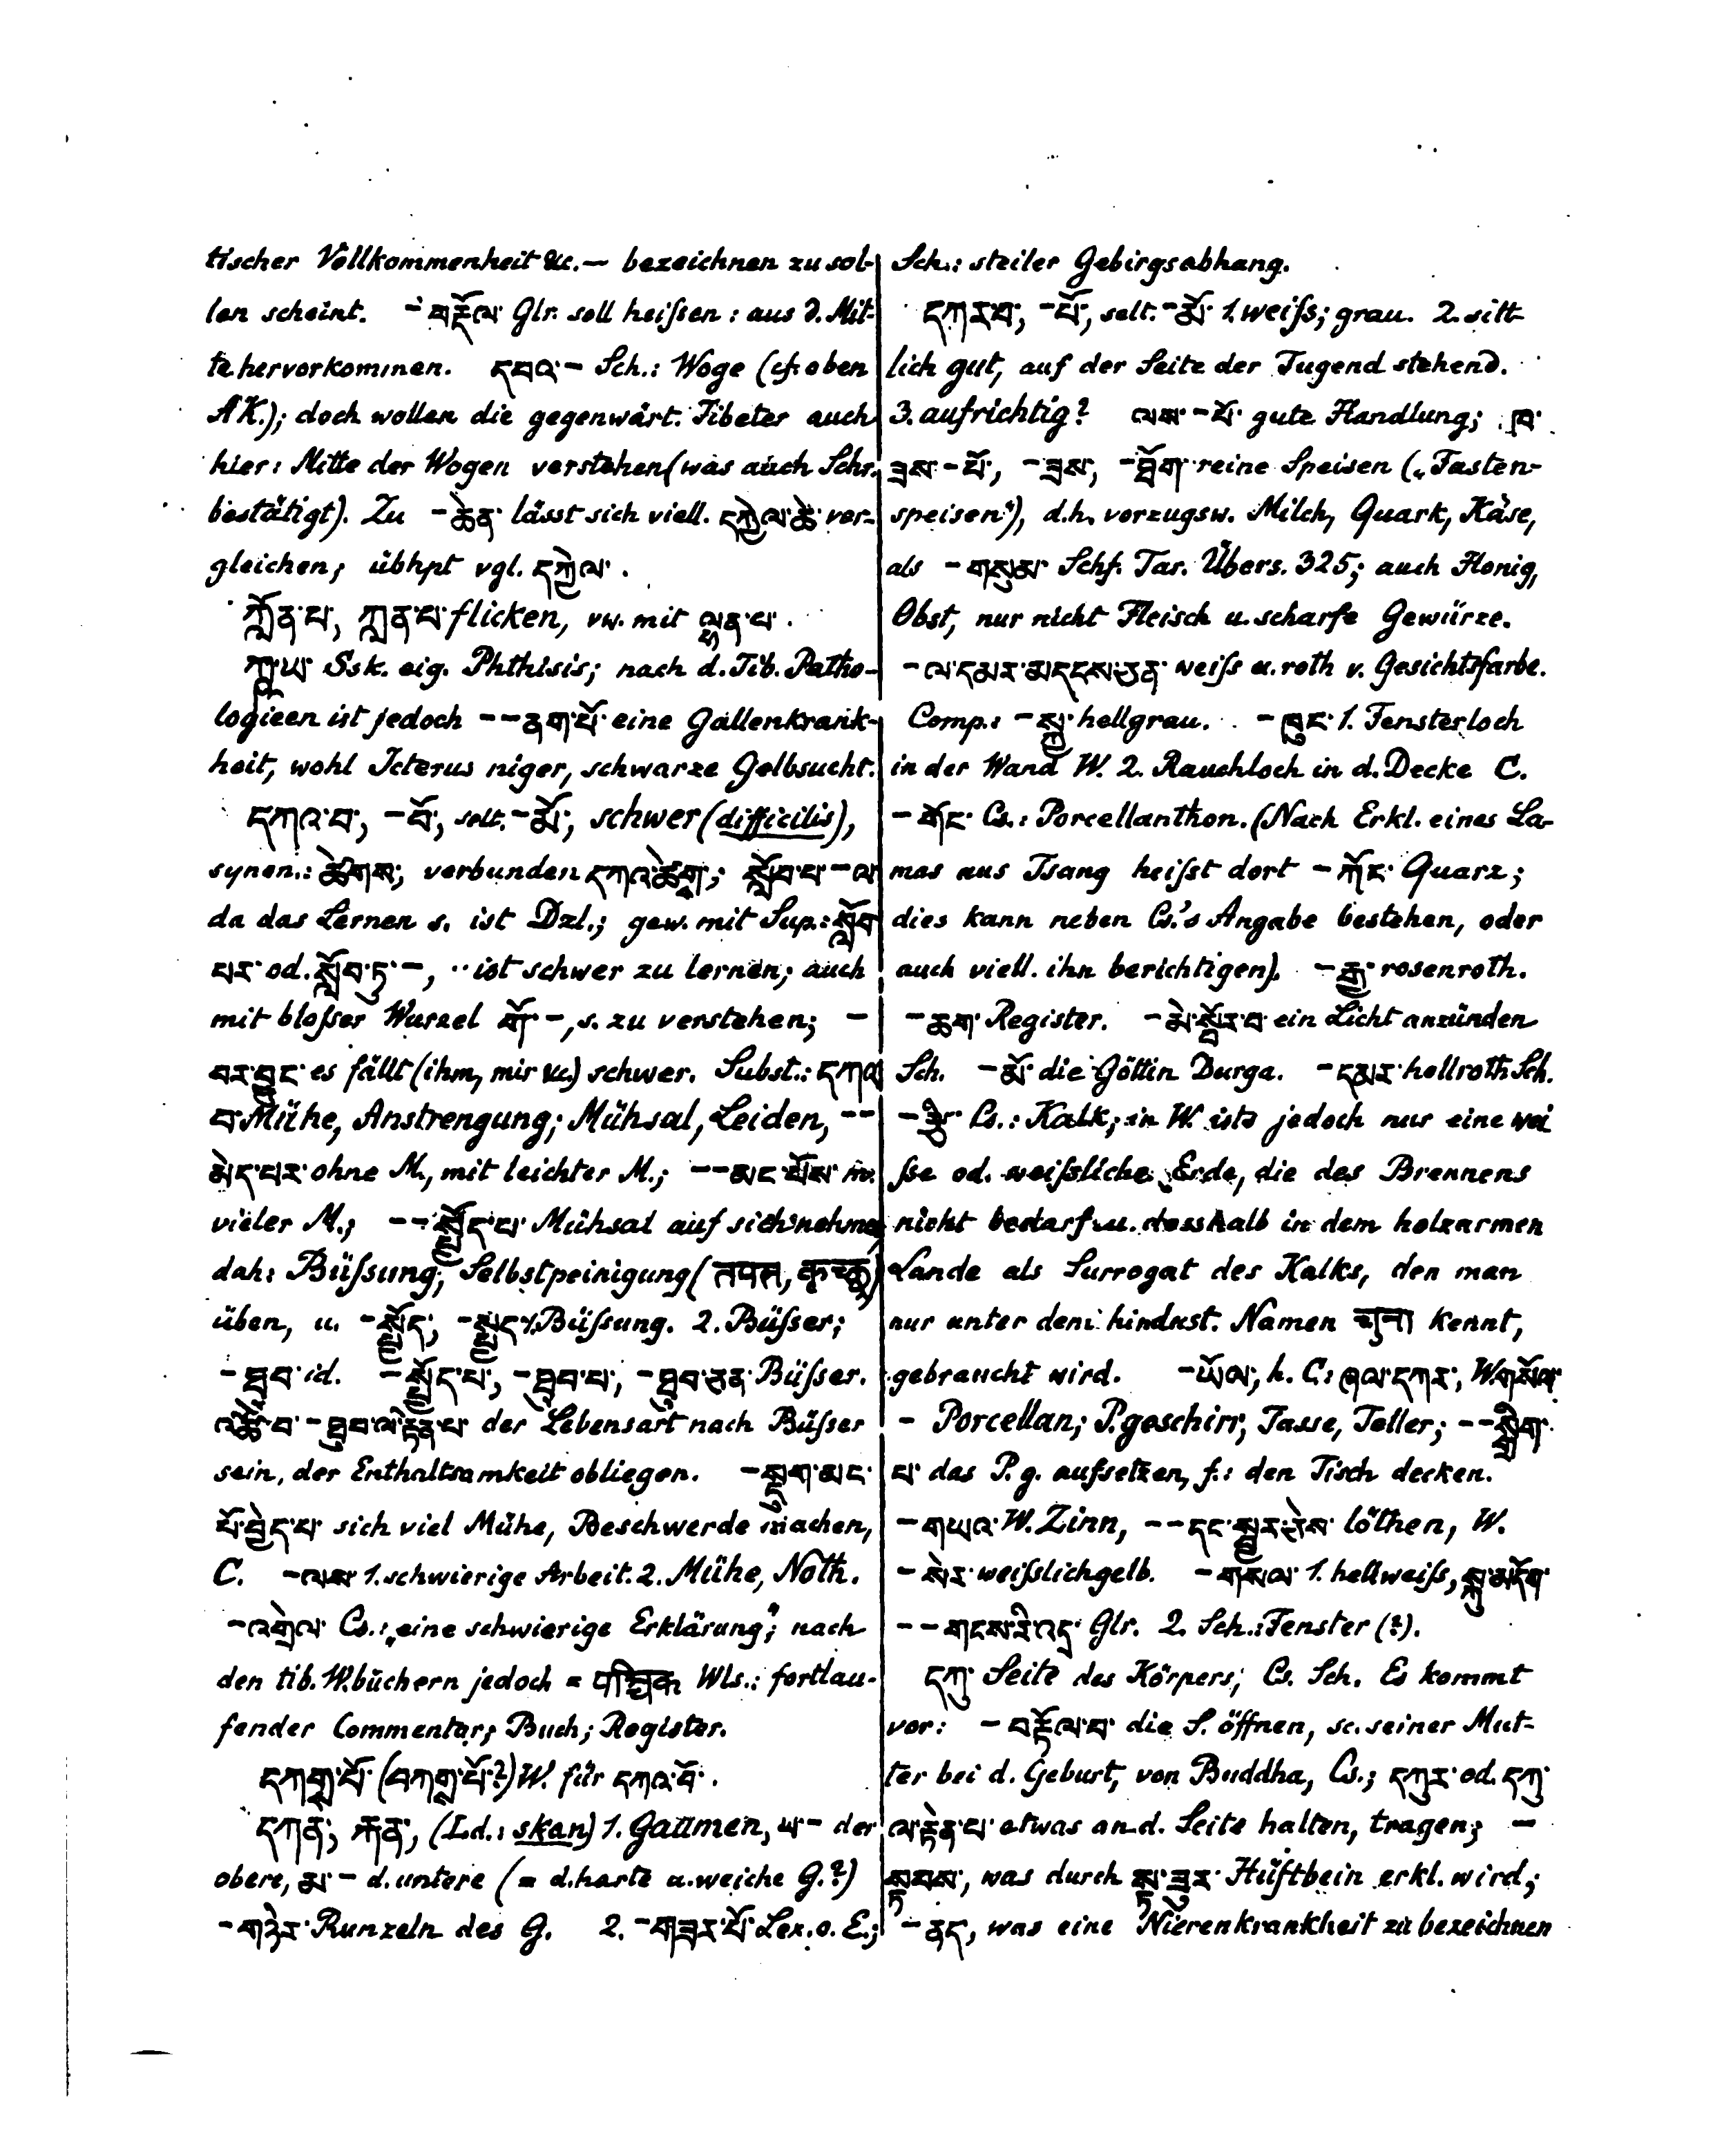 tischer Vollkommenheit &c. — bezeichnen zu sol-
len scheint. – བརྡོལ་ Glr. soll heißen: aus d. Mit-
te hervorkommen. དབའ་ – Sch.: Woge (cf. oben
AK.); doch wollen die gegenwärt. Tibeter auch
hier: Mitte der Wogen verstehen (was auch Schr.
bestätigt). Zu – ཆེན་ lässt sich viell. དཀྱེལ་ཆེ་ ver-
gleichen; übhpt vgl. དཀྱེལ་.
ཀློན་པ་, ཀླན་པ་ flicken, vw. mit ལྷན་པ་.
ཀླུ་ཡ་ Ssk. eig. Phthisis; nach d. Tib. Patho-
logieen ist jedoch –– ནག་པོ་ eine Gallenkrank-
heit, wohl Icterus niger, schwarze Gelbsucht.
དཀའ་བ་, –བོ་, selt. –མོ་, schwer (difficilis),
synon.: ཚེགས་, verbunden དཀའ་ཚེགས་; སློབ་པ་ –ལ་
da das Lernen s. ist Dzl.; gew. mit Sup.: སློབ་
པར་ od. སློབ་ཏུ་ –, .. ist schwer zu lernen; auch
mit bloßer Wurzel གོ་ –, s. zu verstehen; –
བར་བྱུང་ es fällt (ihm, mir &c.) schwer. Subst.: དཀའ་
བ་ Mühe, Anstrengung; Mühsal, Leiden, ––
མེད་པར་ ohne M., mit leichter M.; –– མང་པོས་ m.
vieler M.; –– སྤྱོད་པ་ Mühsal auf sich nehmen
dah: Büßung, Selbstpeinigung (तपस्, कृच्छ्र)
üben, u. – སྤྱོད་, – སྤྱད་ 1. Büßung. 2. Büßer;
– ཐུབ་ id. – སྤྱོད་པ་, – ཐུབ་པ་, – ཐུབ་ཅན་ Büßer.
འཚོ་བ་ – ཐུབ་ལ་རྟེན་པ་ der Lebensart nach Büßer
sein, der Enthaltsamkeit obliegen. – སྡུག་མང་
པོ་བྱེད་པ་ sich viel Mühe, Beschwerde machen,
C. – ལས་ 1. schwierige Arbeit. 2. Mühe, Noth.
– འགྲེལ་ Cs.: „eine schwierige Erklärung"; nach
den tib. W.büchern jedoch = पञ्जिका Wls.: fortlau-
fender Commentar; Buch; Register.
དཀགླུ་པོ་ (བཀགླུ་པོ་?) W. für དཀའ་བོ་.
དཀན་, རྐན་, (Ld.: skan) 1. Gaumen, ཡ་ – der
obere, མ་ – d. untere (= d. harte u. weiche G.?)
– གཉེར་ Runzeln des G. 2. – གཟར་པོ་ Lex. o. E.;
Sch.: steiler Gebirgsabhang.
དཀར་བ་, –པོ་, selt. –མོ་ 1. weiß; grau. 2. sitt-
lich gut, auf der Seite der Tugend stehend.
3. aufrichtig? ལས་ –པོ་ gute Handlung; ཁ་
ཟས་ –པོ་, –ཟས་, –ཐོག་ reine Speisen („Fasten-
speisen"), d.h. vorzugsw. Milch, Quark, Käse,
als – གསུམ་ Schf. Tar. Übers. 325; auch Honig,
Obst, nur nicht Fleisch u. scharfe Gewürze.
– ལ་དམར་མདངས་ཅན་ weiß u. roth v. Gesichtsfarbe.
Comp.: – སྐྱ་ hellgrau. – ཁུང་ 1. Fensterloch
in der Wand W. 2. Rauchloch in d. Decke C.
– གོང་ Cs.: Porcellanthon. (Nach Erkl. eines La-
mas aus Tsang heißt dort – ཀོང་ Quarz;
dies kann neben Cs.'s Angabe bestehen, oder
auch viell. ihn berichtigen). – རྒྱ་ rosenroth.
– ཆག་ Register. – མེ་སྦོར་བ་ ein Licht anzünden
Sch. – མོ་ die Göttin Durga. – དམར་ hellroth Sch.
– རྩི་ Cs.: Kalk; in W. ists jedoch nur eine wei
ße od. weißliche Erde, die des Brennens
nicht bedarf u. desshalb in dem holzarmen
Lande als Surrogat des Kalks, den man
nur unter dem hindust. Namen चुना kennt,
gebraucht wird. – ཡོལ་, h. C: ཞལ་དཀར་, W. གསོལ་
– Porcellan; P. geschirr, Tasse, Teller; –– སྒྲིག་
པ་ das P. g. aufsetzen, f.: den Tisch decken.
– གཡའ་ W. Zinn, –– དང་སྦྱར་ཉེས་ löthen, W.
– སེར་ weißlichgelb. – གསལ་ 1. hellweiß, སྐུ་མདོག་
–– གངས་རི་འདྲ་ Glr. 2. Sch.: Fenster (?).
དཀུ་ Seite des Körpers; Cs. Sch. Es kommt
vor: – བརྟོལ་བ་ die S. öffnen, sc. seiner Mut-
ter bei d. Geburt, von Buddha, Cs.; དཀུར་ od. དཀུ་
ལ་རྟེན་པ་ etwas an d. Seite halten, tragen; –
སྟབས་, was durch སྟ་ཟུར་ Hüftbein erkl. wird;
– ནད་, was eine Nierenkrankheit zu bezeichnen